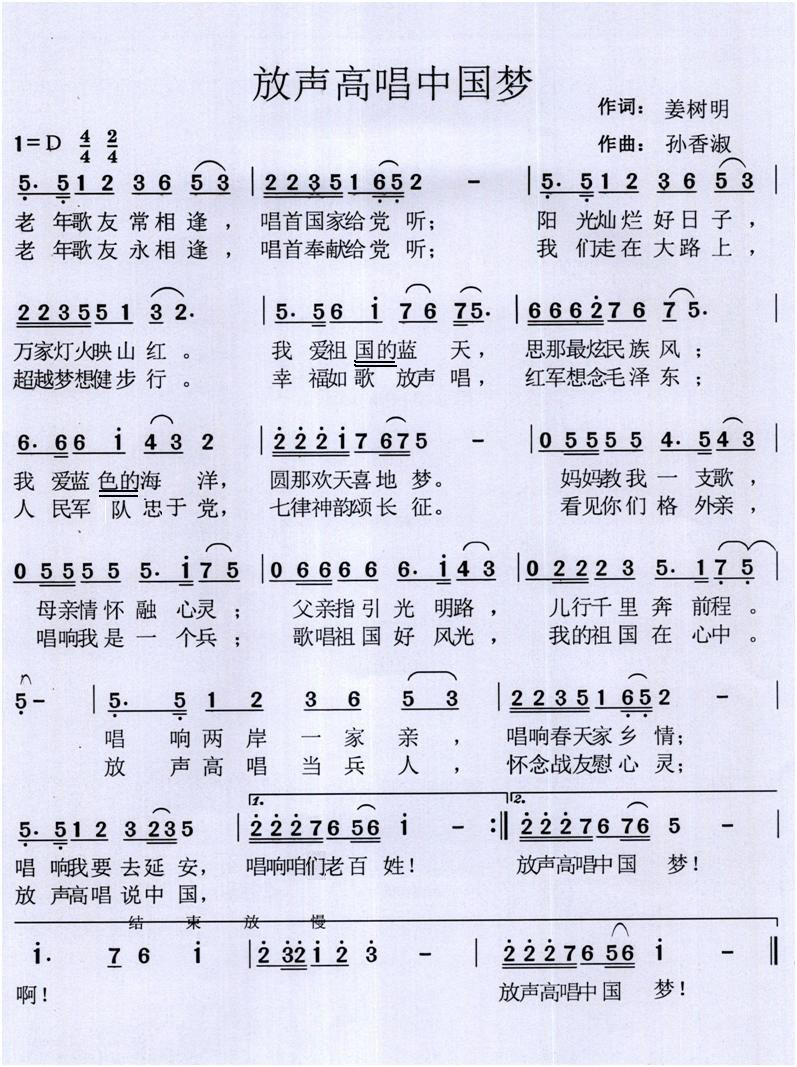 放声高唱中国梦
作词：姜树明
1=D 4/4 2/4
作曲：孙香淑
5. 5 1 2 3 6 5 3 | 2 2 3 5 1 6 5 2 - | 5. 5 1 2 3 6 5 3 |
老年歌友常相逢，唱首国家给党听；阳光灿烂好日子，
老年歌友永相逢，唱首奉献给党听；我们走在大路上，
2 2 3 5 5 5 1 3 2. | 5. 5 6 i 7 6 7 5. | 6 6 6 2 7 6 7 5. |
万家灯火映山红。我爱祖国的蓝天，思那最炫民族风；
超越梦想健步行。幸福如歌放声唱，红军想念毛泽东；
6. 6 6 i 4 3 2 | 2 2 2 1 7 6 7 5 - | 0 5 5 5 5 4. 5 4 3 |
我爱蓝色的海洋，圆那欢天喜地梦。妈妈教我一支歌，
人民军队忠于党，七律神韵颂长征。看见你们格外亲，
0 5 5 5 5 5. i 7 5 | 0 6 6 6 6 6. i 4 3 | 0 2 2 2 3 5. 1 7 5 |
母亲情怀融心灵；父亲指引光明路，儿行千里奔前程。
唱响我是一个兵；歌唱祖国好风光，我的祖国在心中。
5 - | 5. 5 1 2 3 6 5 3 | 2 2 3 5 1 6 5 2 - |
唱响两岸一家亲，唱响春天家乡情；
放声高唱当兵人，怀念战友慰心灵；
1. 2.
5. 5 1 2 3 2 3 5 | 2 2 2 7 6 5 6 i - :‖ 2 2 2 7 6 7 6 5 - |
唱响我要去延安，唱响咱们老百姓！放声高唱中国梦！
放声高唱说中国，
结束放慢
i. 7 6 i | 2 3 2 i 2 3 - | 2 2 2 7 6 5 6 i - ‖
啊！放声高唱中国梦！